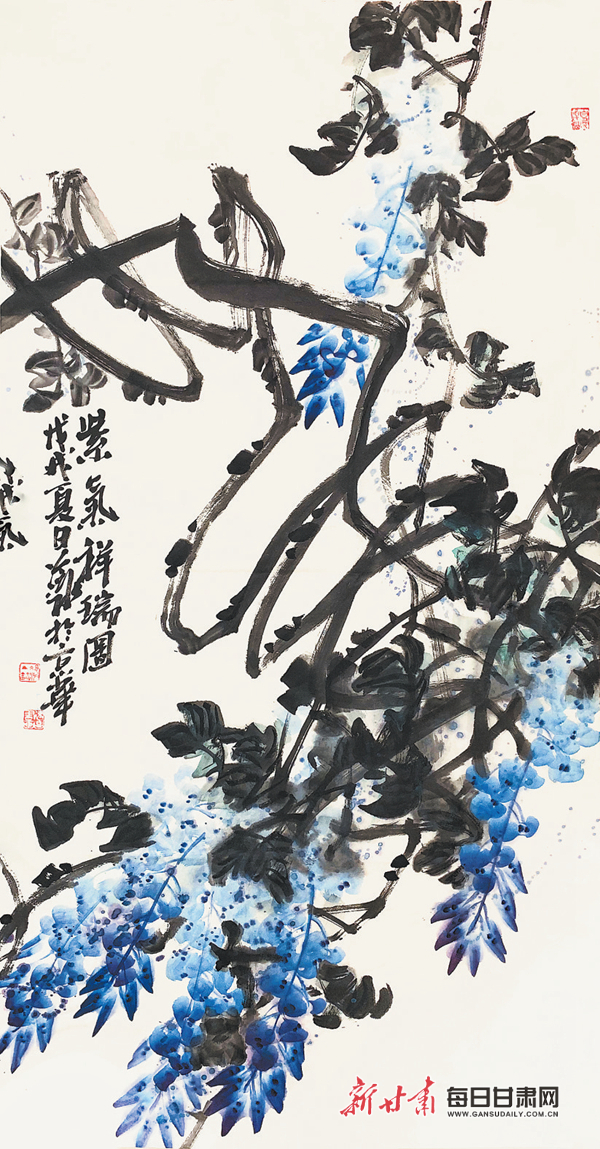 紫氣祥瑞圖
戊戌夏日
於京華
氣
新甘肃
每日甘肃网
WWW.GANSUDAILY.COM.CN